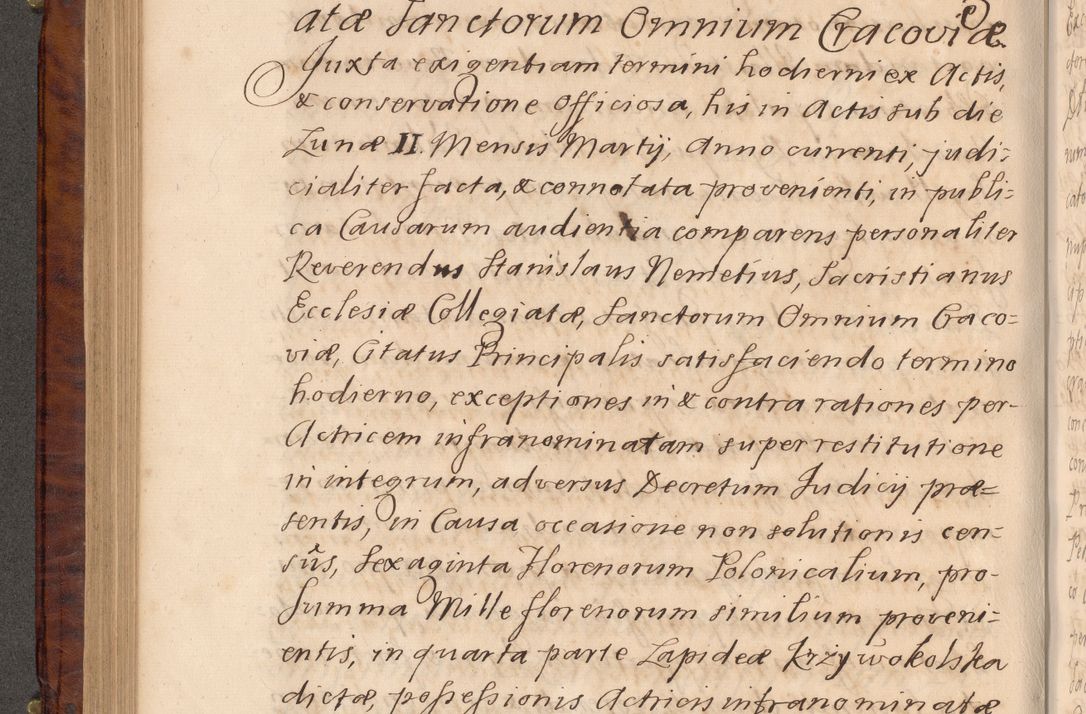 atæ Sanctorum Omnium Cracoviæ.
Juxta exigentiam termini hodierni ex Actis,
& conservatione officiosa, his in Actis sub die
Lunæ II. Mensis Martij, Anno currenti, judi=
cialiter facta, & connotata provenienti, in publi=
ca Causarum audientia comparens personaliter
Reverendus Stanislaus Nemetius, Sacristianus
Ecclesiæ Collegiatæ, Sanctorum Omnium Craco=
viæ, Citatus Principalis satisfaciendo termino
hodierno, exceptiones in & contra rationes per-
Actricem infranominatam super restitutione
in integrum, adversus Decretum Judicij præ=
sentis, in Causa occasione non solutionis cen=
sûs, Sexaginta Florenorum Polonicalium, pro-
Summa Mille florenorum similium proveni=
entis, in quarta parte Lapideæ Krzywokolska
dictæ, possessionis Actricis infranominatæ